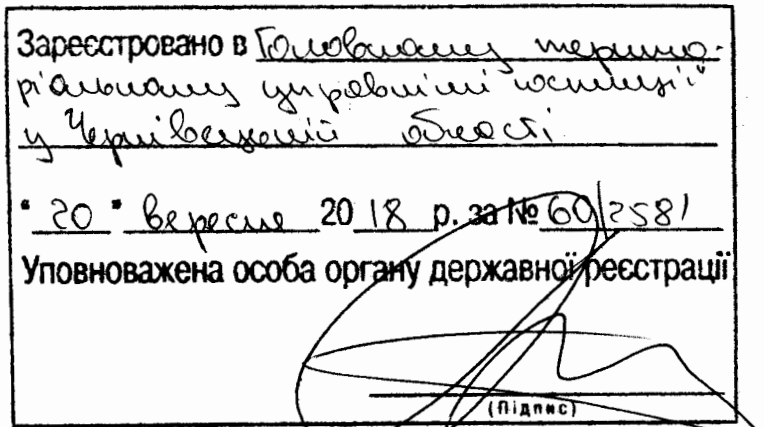 Зареєстровано в Головному терито-
ріальному управлінні юстиції
у Чернівецькій області
"20" вересня 2018 р. за № 60/2581
Уповноважена особа органу державної реєстрації
(Підпис)